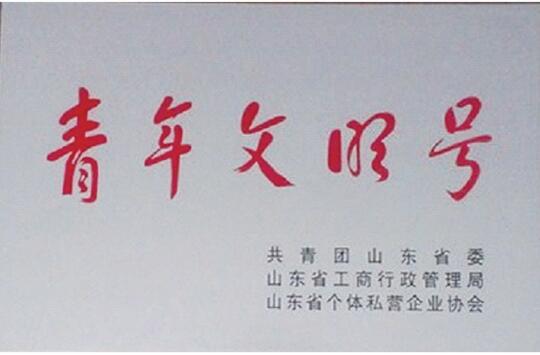 青年文明号
共青团山东省委
山东省工商行政管理局
山东省个体私营企业协会